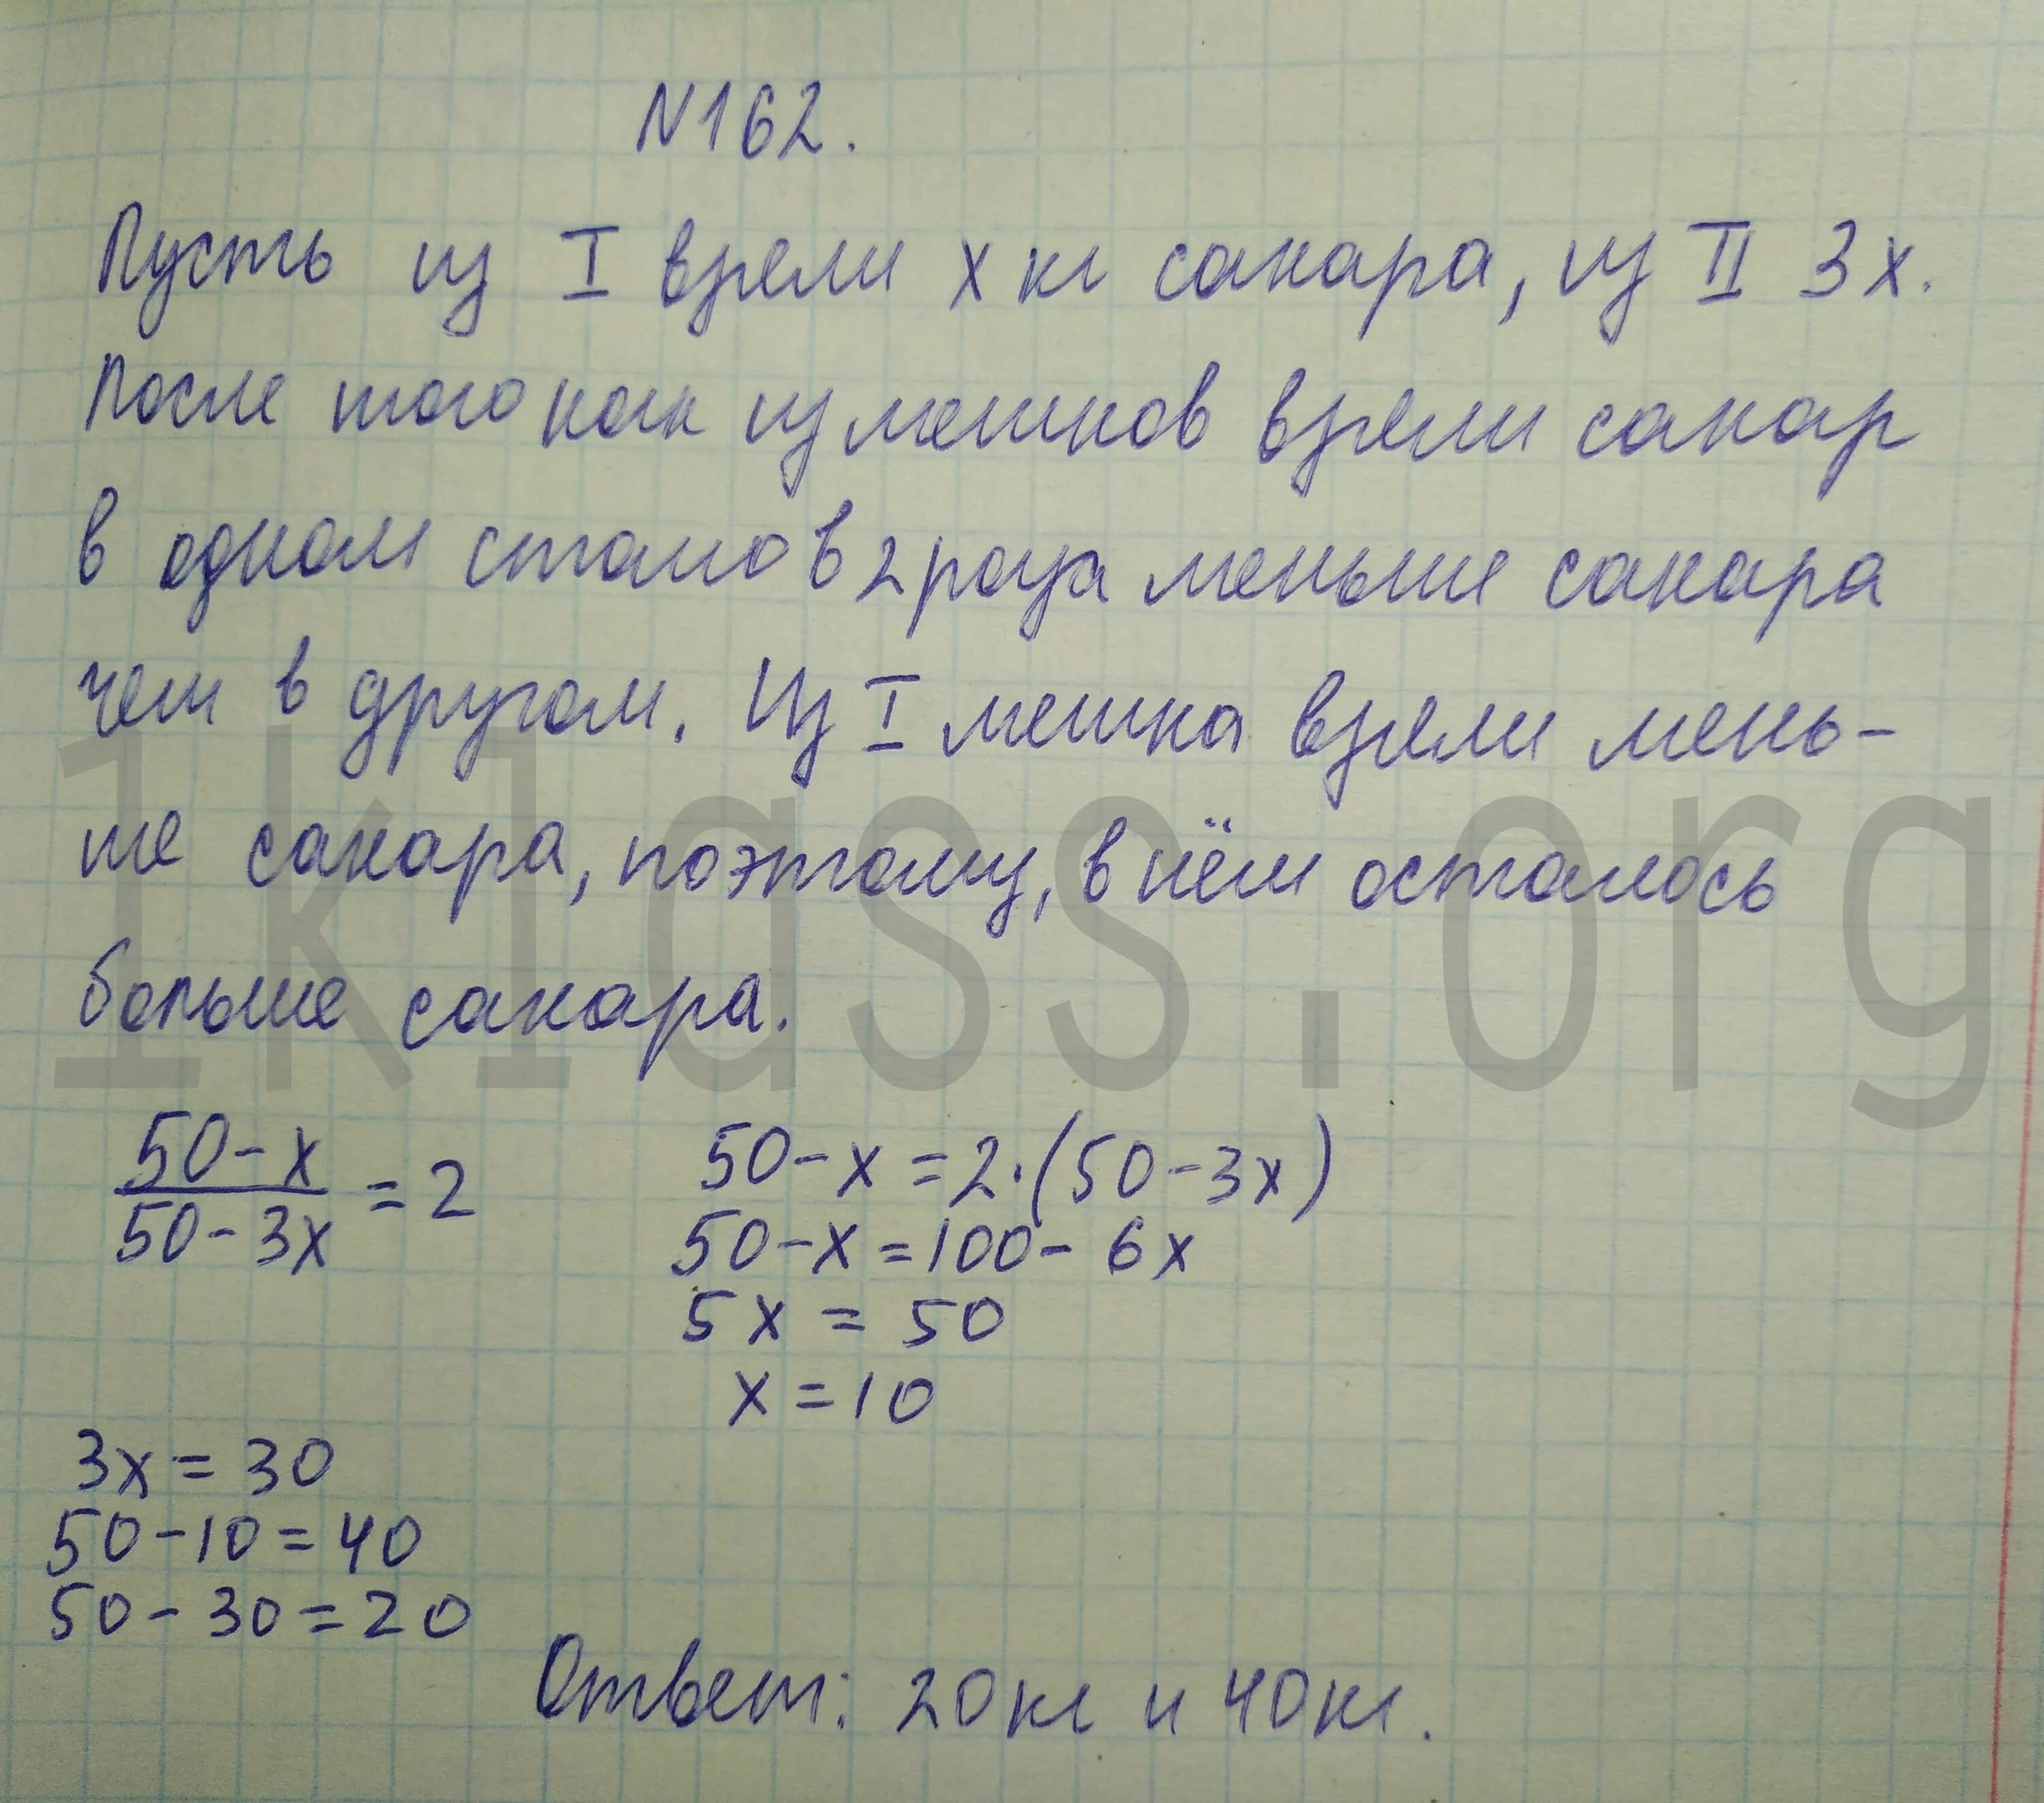 N162.
Пусть из I взяли x кг сахара, из II 3x.
После того как из мешков взяли сахар
в одном стало в 2 раза меньше сахара
чем в другом. Из I мешка взяли мень-
ше сахара, поэтому, в нём осталось
больше сахара.
1klass.org
50-x / 50-3x = 2
50-x=2·(50-3x)
50-x=100-6x
5x = 50
x=10
3x=30
50-10=40
50-30=20
Ответ: 20кг и 40кг.